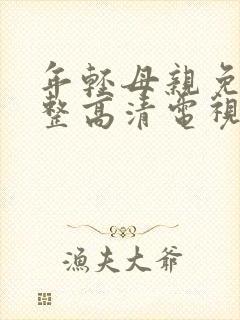 年輕母親免
整高清電視
漁夫大爺